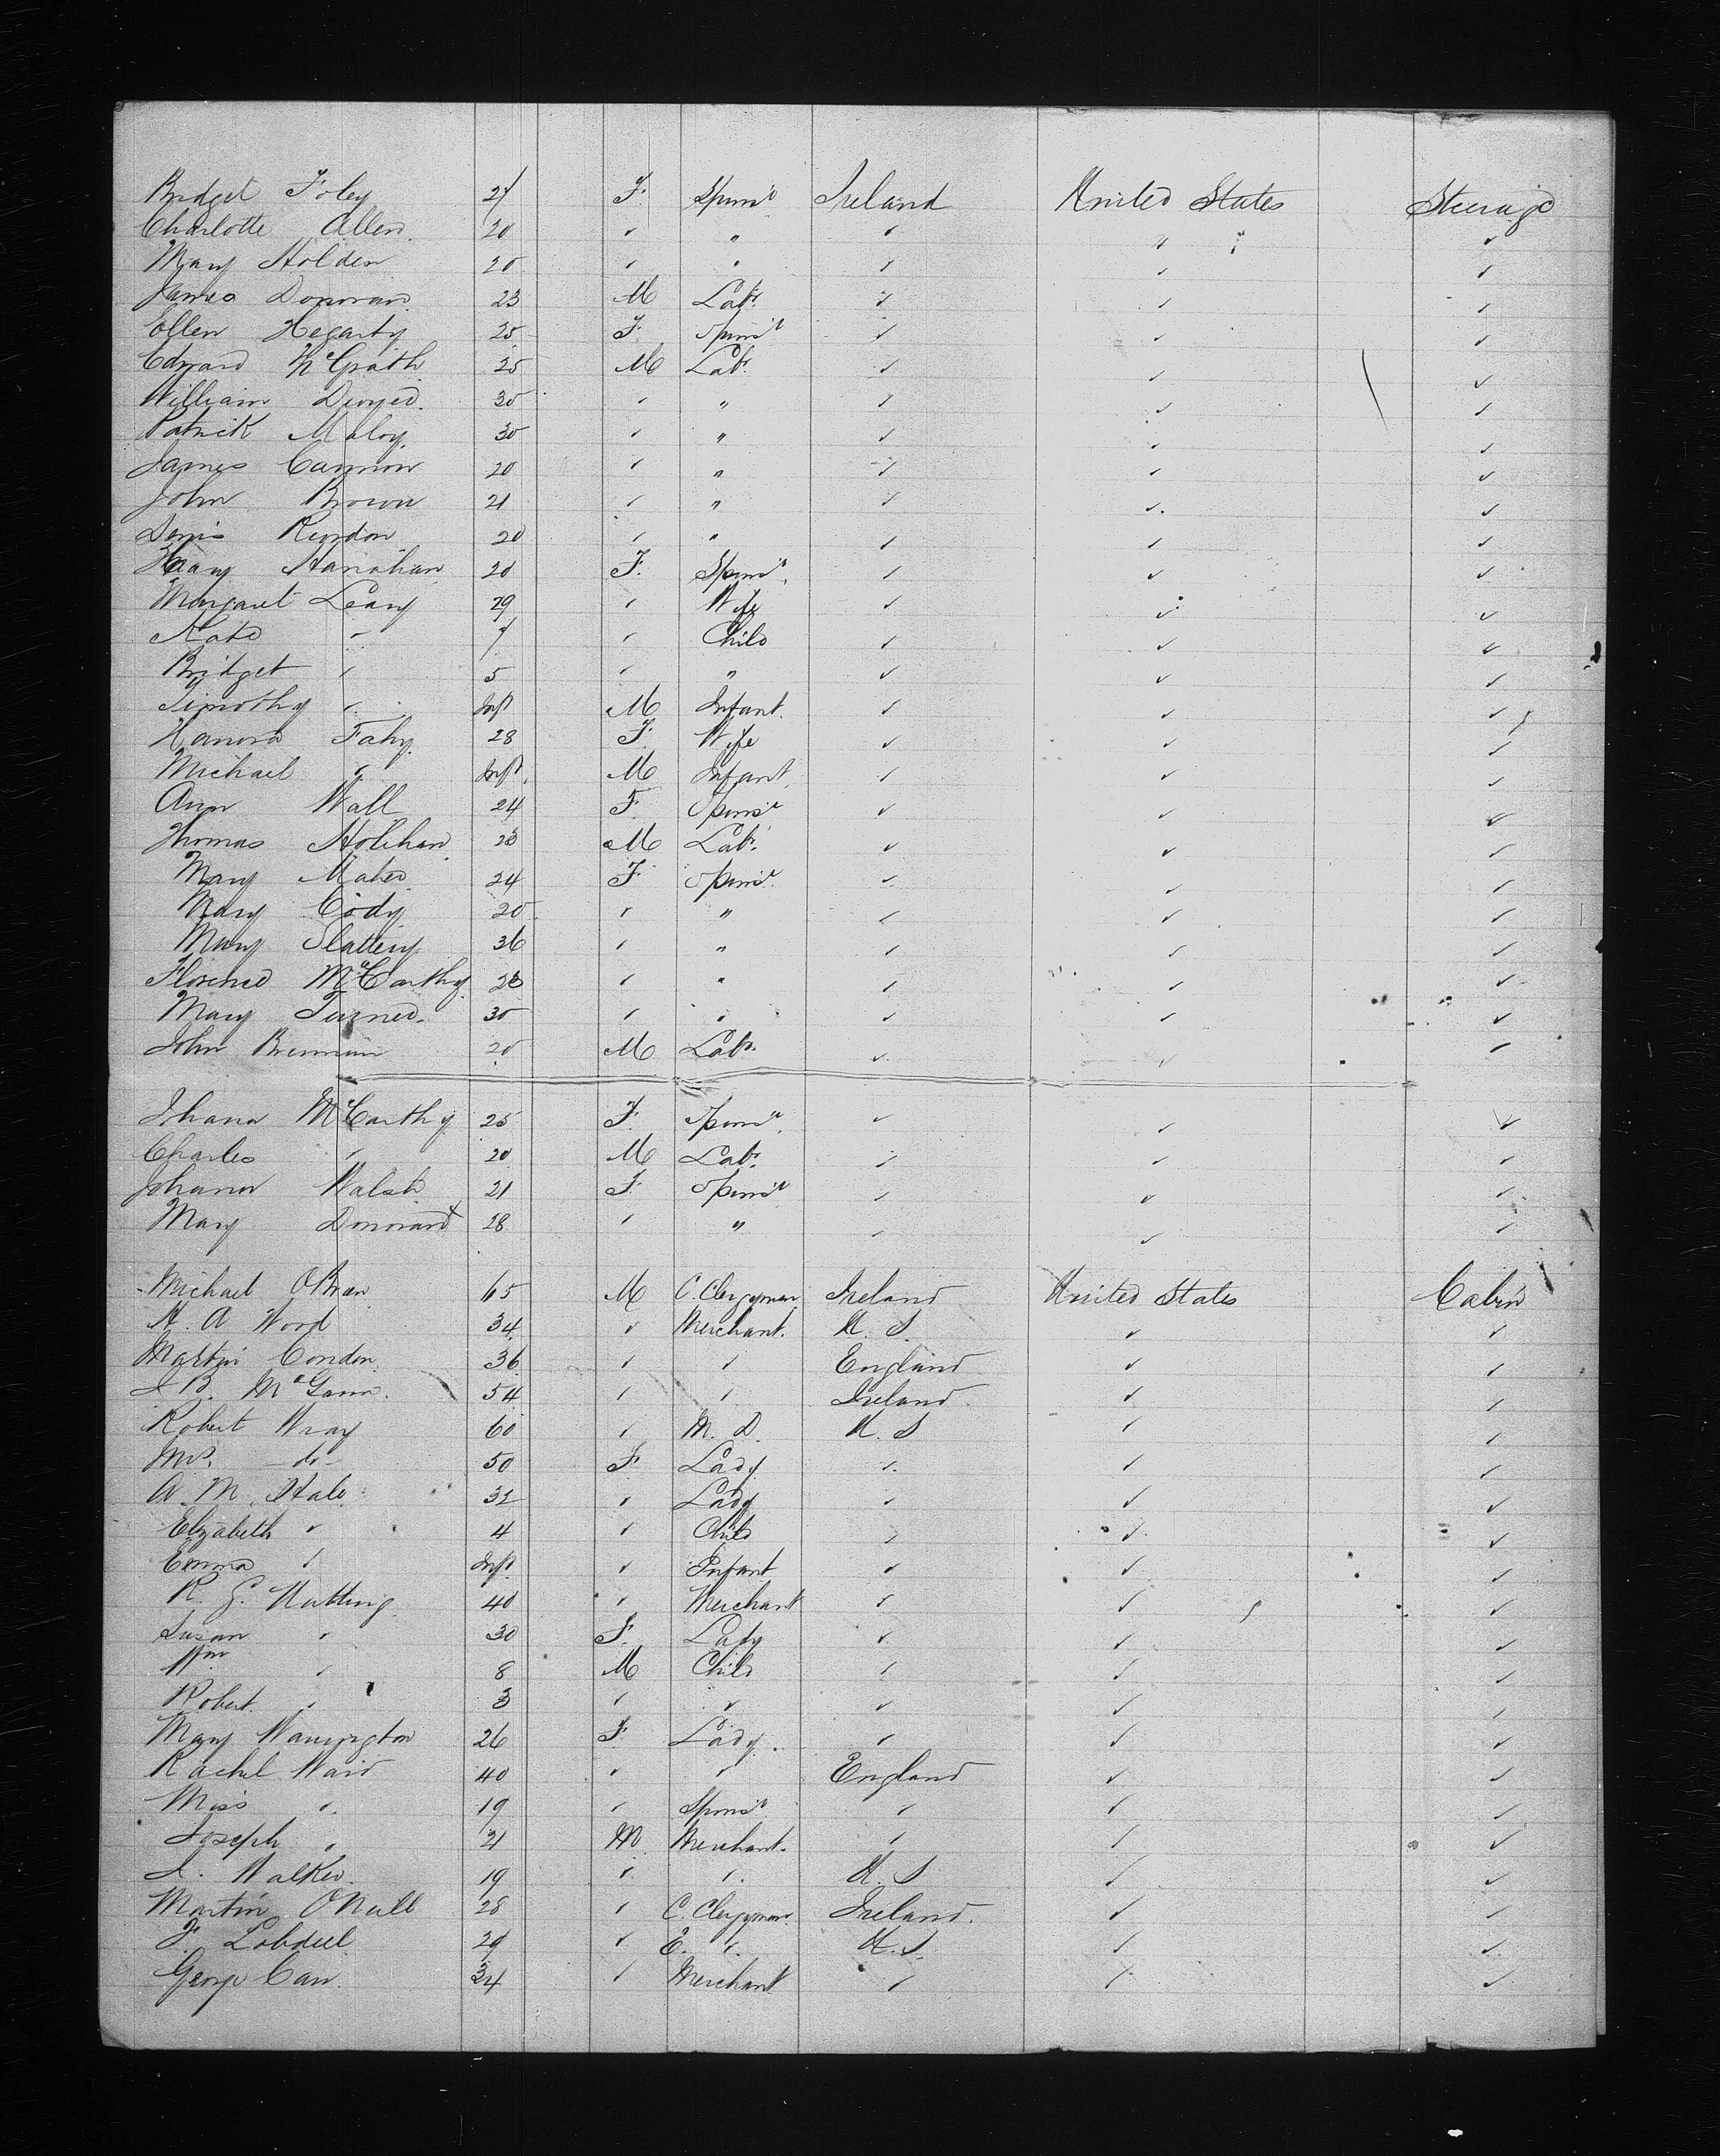 Bridget Foley 21 F. Spins^r Ireland United States Steerage
Charlotte Allen 20 ✓ " ✓ " " ✓
Mary Holden 20 ✓ " ✓ ✓ ✓
James Donovan 23 M Lab^r. ✓ ✓ ✓
Ellen Hegarty 25 F. Spins^r ✓ ✓ ✓
Edward McGrath 25 M Lab^r. ✓ ✓ ✓
William Dwyer. 30 ✓ " ✓ ✓ ✓
Patrick Maloy. 30 ✓ " ✓ ✓ ✓
James Cannion 20 ✓ " ✓ ✓ ✓
John Brown 21 ✓ " ✓ ✓ ✓
Denis Reordon 20 ✓ " ✓ ✓ ✓
Mary Hanrahan 20 F. Spins^r. ✓ ✓ ✓
Margaret Leary 29 ✓ Wife ✓ ✓ ✓
Kate ✓ 7 ✓ Child ✓ ✓ ✓
Bridget ✓ 5 ✓ " ✓ ✓ ✓
Timothy ✓ Inft M Infant. ✓ ✓ ✓
Hanora Fahy. 28 F. Wife ✓ ✓ ✓
Michael ✓ Inft. M Infant ✓ ✓ ✓
Ann Wall 24 F. Spins^r ✓ ✓ ✓
Thomas Holihan M Lab^r. ✓ ✓ ✓
Mary Maher 24 F. Spins^r. ✓ ✓ ✓
Mary Cody 20 ✓ " ✓ ✓ ✓
Mary Slattery 36 ✓ " ✓ ✓ ✓
Florence McCarthy ✓ " ✓ ✓ ✓
Mary Turner. 30 ✓ " ✓ ✓ ✓
John Brennan 20 M Lab^r. ✓ ✓ ✓
Johana McCarthy 25 F. Spins^r. ✓ ✓ ✓
Charles ✓ 20 M Lab^r. ✓ ✓ ✓
Johana Walsh 21 F. Spins^r ✓ ✓ ✓
Mary Donovan 28 ✓ " ✓ ✓ ✓
Michael OBrian 65 M C. Clergyman Ireland United States Cabin
H. A Wood 34 ✓ Merchant. U. S. ✓ ✓
Martin Condon 36 ✓ ✓ England ✓ ✓
J B. McGann. 54 ✓ ✓ Ireland. ✓ ✓
Robert Wray 60 ✓ M. D. U. S ✓ ✓
Mrs. -do- 50 F. Lady ✓ ✓ ✓
A. M. Hale 32 ✓ Lady ✓ ✓ ✓
Elizabeth ✓ 4 ✓ Child ✓ ✓ ✓
Emma ✓ Inft. ✓ Infant ✓ ✓ ✓
R. G. Nutting 40 ✓ Merchant ✓ ✓ ✓
Susan ✓ 30 F. Lady ✓ ✓ ✓
Wm ✓ 8 M Child ✓ ✓ ✓
Robert. ✓ 3 ✓ ✓ ✓ ✓ ✓
Mary Warrington 26 F. Lady. ✓ ✓ ✓
Rachel Ward 40 ✓ ✓ England ✓ ✓
Miss ✓ 19 ✓ Spins^r ✓ ✓ ✓
Joseph ✓ 21 M Merchant. ✓ ✓ ✓
J. Walker. 19 ✓ ✓ U. S ✓ ✓
Martin ONeill 28 ✓ C. Clergyman. Ireland. ✓ ✓
F. Lobdell 29 ✓ E. ✓ U. S. ✓ ✓
George Carr. 34 ✓ Merchant ✓ ✓ ✓